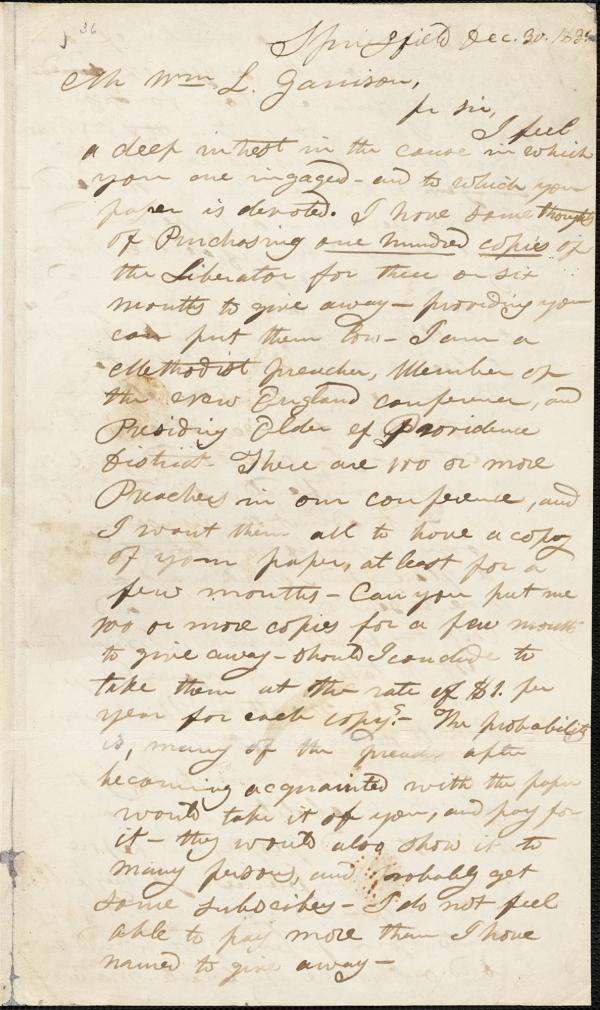 36
Springfield Dec. 30. 183
Mr Wm L. Garrison,
Dr sir,
I feel
a deep intrest in the cause in which
you are ingaged - and to which your
paper is devoted. I have some thoughts
of Purchasing one hundred copies of
the Liberator for three or six
months to give away - providing you
can put them low - I am a
Methodist preacher, Member of
the New England conference, and
Presiding Elder of Providence
District - There are 100 or more
Preachers in our conference, and
I want them all to have a copy
of your paper, at least for a
few months - Can you put me
100 or more copies for a few month
to give away - should I conclude to
take them at the rate of $1. per
year for each copy? - The probability
is, many of the preachers after
becoming acquainted with the paper
would take it of you, and pay for
it - they would also show it to
many persons, and probably get
some subscibers - I do not feel
able to pay more than I have
named to give away -